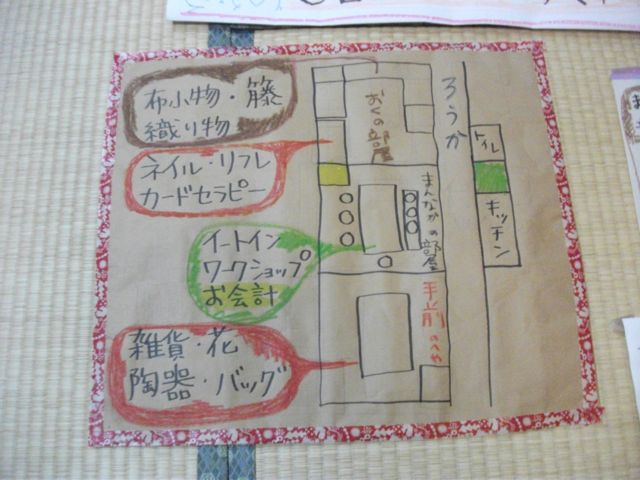 布小物・籐
織り物
ネイル・リフレ
カードセラピー
イートイン
ワークショップ
お会計
雑貨・花
陶器・バッグ
おくの部屋
まんなかの部屋
手前のへや
ろうか
トイレ
キッチン